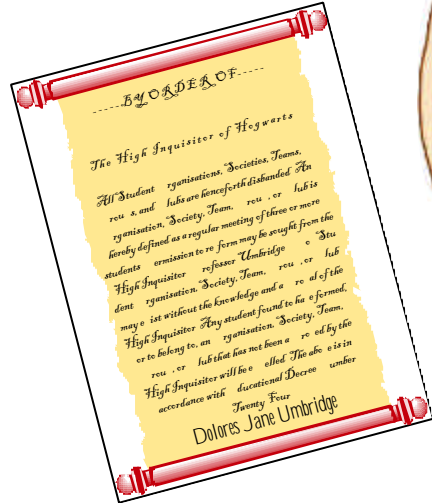 -----BY ORDER OF-----
The High Inquisitor of Hogwarts
All Student rganisations, Societies, Teams,
rou s, and lubs are henceforth disbanded An
rganisation, Society, Team, rou , or lub is
hereby defined as a regular meeting of three or more
students ermission to re form may be sought from the
High Inquisitor rofessor Umbridge o Stu
dent rganisation, Society, Team, rou , or lub
may e ist without the knowledge and a ro al of the
High Inquisitor Any student found to ha e formed,
or to belong to, an rganisation, Society, Team,
rou , or lub that has not been a ro ed by the
High Inquisitor will be e elled The abo e is in
accordance with ducational Decree umber
Twenty Four
Dolores Jane Umbridge